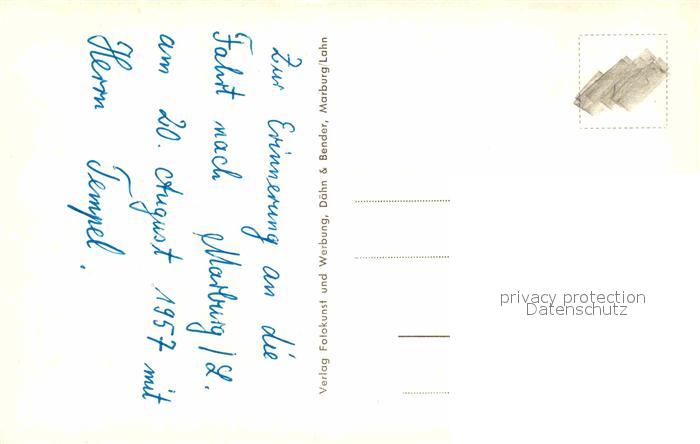 Zur Erinnerung an die
Fahrt nach Marburg/L.
am 20. August 1957 mit
Herrn Tempel.
Verlag Fotokunst und Werbung, Döhn & Bender, Marburg/Lahn
privacy protection
Datenschutz